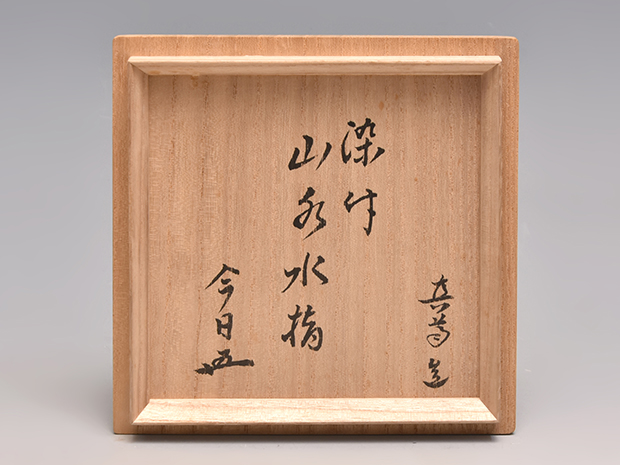 真葛造
染付
山水水指
今日庵